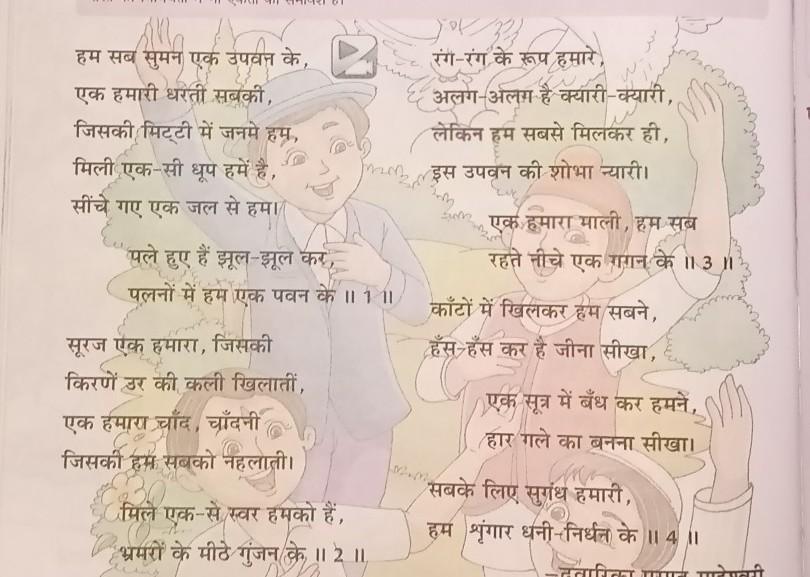 हम सब सुमन एक उपवन के,
एक हमारी धरती सबकी,
जिसकी मिट्टी में जनमे हम,
मिली एक-सी धूप हमें है,
सींचे गए एक जल से हम।
पले हुए हैं झूल-झूल कर,
पलनों में हम एक पवन के ॥ 1 ॥
सूरज एक हमारा, जिसकी
किरणें उर की कली खिलातीं,
एक हमारा चाँद, चाँदनी
जिसकी हम सबको नहलाती।
मिले एक-से स्वर हमको हैं,
भ्रमरों के मीठे गुंजन के ॥ 2 ॥
रंग-रंग के रूप हमारे,
अलग-अलग है क्यारी-क्यारी,
लेकिन हम सबसे मिलकर ही,
इस उपवन की शोभा न्यारी।
एक हमारा माली, हम सब
रहते नीचे एक गगन के ॥ 3 ॥
काँटों में खिलकर हम सबने,
हँस-हँस कर है जीना सीखा,
एक सूत्र में बँध कर हमने,
हार गले का बनना सीखा।
सबके लिए सुगंध हमारी,
हम श्रृंगार धनी-निर्धन के ॥ 4 ॥